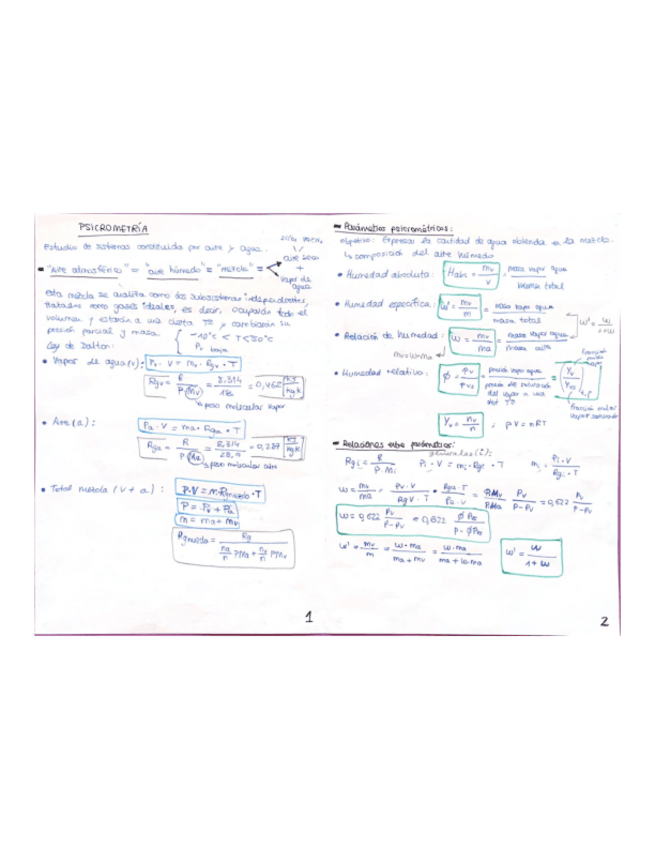 PSICROMETRÍA
Estudio de sistemas constituidos por aire y agua.
"Aire atmosférico" = "aire húmedo" = "mezcla" =
aire seco
+
vapor de agua
esta mezcla se analiza como dos subsistemas independientes
tratados como gases ideales, es decir, ocupando todo el
volumen y estarán a una cierta Tª y cambiarán su
presión parcial y masa.
-10°C < T < 50°C
Pv baja
Ley de Dalton:
• Vapor de agua (v): Pv · V = mv · Rgv · T
Rgv = R / P(Mv) = 8,314 / 18 = 0,462 KJ/KgK
↳ peso molecular vapor
• Aire (a): Pa · V = ma · Rga · T
Rga = R / P(Ma) = 8,314 / 28,9 = 0,287 KJ/KgK
↳ peso molecular aire
• Total mezcla (v + a): P·V = m·Rg mezcla · T
P = Pv + Pa
m = ma + mv
Rg mezcla = Rg / (na/n PMa + nv/n PMv)
1
Parámetros psicrométricos:
objetivo: Expresar la cantidad de agua obtenida en la mezcla.
↳ composición del aire húmedo
• Humedad absoluta: Habs = mv / V = masa vapor agua / volumen total
• Humedad específica: w' = mv / m = masa vapor agua / masa total
w' = w / 1+w
• Relación de humedad: w = mv / ma = masa vapor agua / masa aire
mv = w·ma
• Humedad relativa: ϕ = Pv / Pvs = presión vapor agua / presión de saturación del vapor a una det Tª = (Yv / Yvs) T,P
fracción molar vapor saturado
Yv = nv / n ; P·V = nRT
Relaciones entre parámetros:
generales (i):
Rgi = R / P·Mi Pi · V = mi · Rgi · T mi = Pi · V / Rgi · T
w = mv / ma = Pv · V / Rgv · T · Rga · T / Pa · V = PMv / PMa Pv / P-Pv = 0,622 Pv / P-Pv
w = 0,622 Pv / P-Pv = 0,622 ϕPvs / P-ϕPvs
w' = mv / m = w·ma / ma + mv = w·ma / ma + w·ma w' = w / 1+w
2